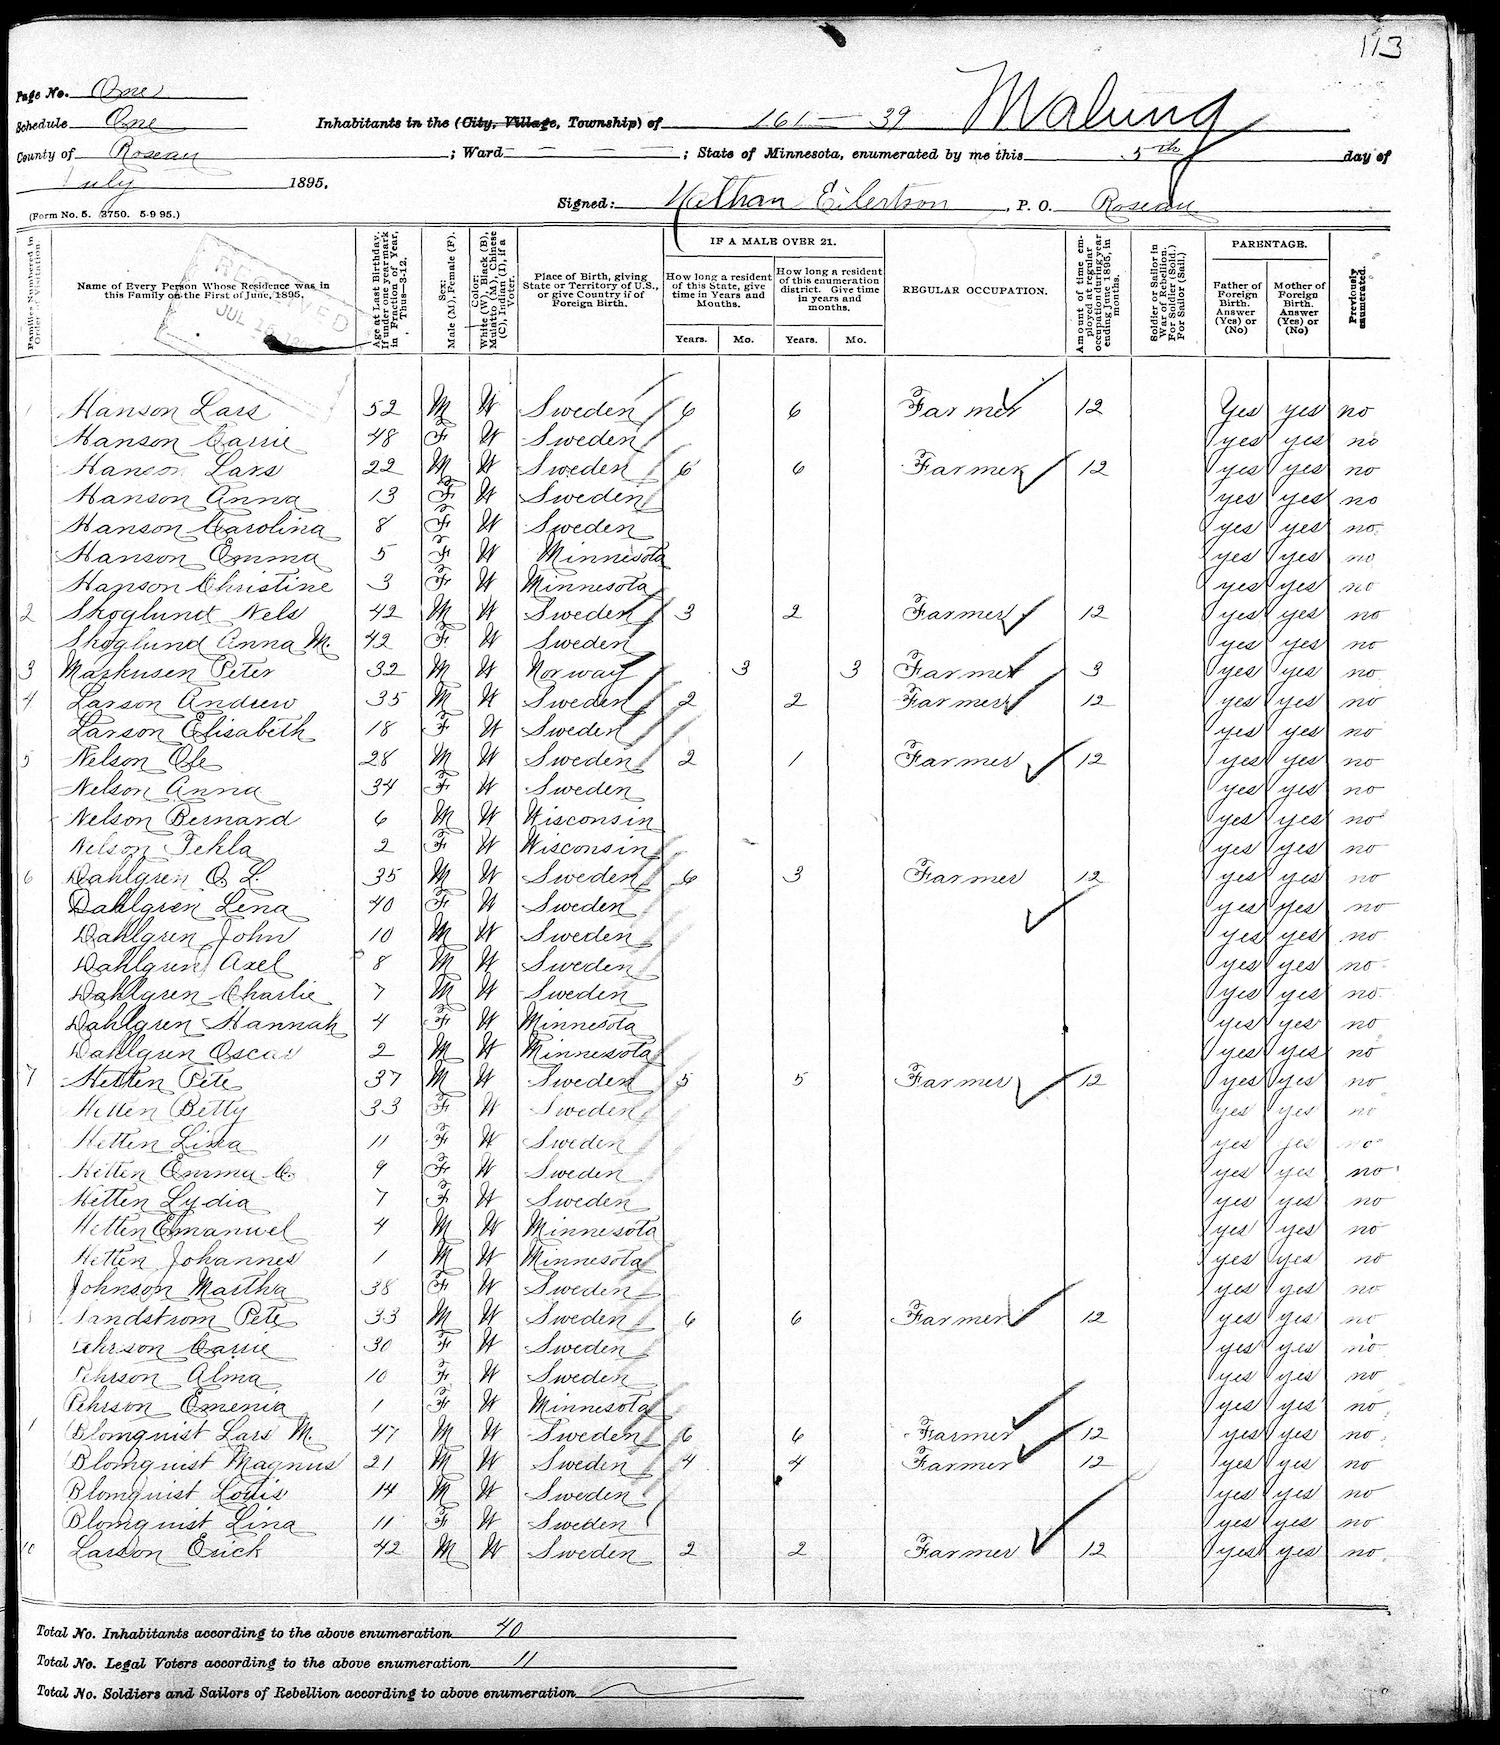 113
Page No. One
Schedule One
Inhabitants in the (City, Village, Township) of 161 — 39 Malung
County of Roseau ; Ward — — — ; State of Minnesota, enumerated by me this 5th day of
July 1895.
Signed: Nathan Eilertson, P. O. Roseau
(Form No. 5. 3750. 5-9 95.)
RECEIVED
JUL 16
Families Numbered in Order of Visitation.
Name of Every Person Whose Residence was in this Family on the First of June, 1895.
Age at Last Birthday. If under one year mark in Fraction of Year, Thus—8-12.
Sex: Male (M), Female (F).
Color: White (W), Black (B), Mulatto (M), Chinese (C), Indian (I), if a Voter.
Place of Birth, giving State or Territory of U.S., or give Country if of Foreign Birth.
IF A MALE OVER 21.
How long a resident of this State, give time in Years and Months.
Years. Mo.
How long a resident of this enumeration district. Give time in years and months.
Years. Mo.
REGULAR OCCUPATION.
Amount of time employed at regular occupation during year ending June 1895, in months.
Soldier or Sailor in War of Rebellion. For Soldier (Sold.) For Sailor (Sail.)
PARENTAGE.
Father of Foreign Birth. Answer (Yes) or (No)
Mother of Foreign Birth. Answer (Yes) or (No)
Previously enumerated.
1 Hanson Lars 52 M W Sweden 6 6 Farmer 12 Yes yes no
Hanson Carrie 48 F W Sweden yes yes no
Hanson Lars 22 M W Sweden 6 6 Farmer 12 yes yes no
Hanson Anna 13 F W Sweden yes yes no
Hanson Carolina 8 F W Sweden yes yes no
Hanson Emma 5 F W Minnesota yes yes no
Hanson Christine 3 F W Minnesota yes yes no
2 Skoglund Nels 42 M W Sweden 3 2 Farmer 12 yes yes no
Skoglund Anna M. 42 F W Sweden yes yes no
3 Markusen Peter 32 M W Norway 3 3 Farmer 3 yes yes no
4 Larson Andrew 35 M W Sweden 2 2 Farmer 12 yes yes no
Larson Elisabeth 18 F W Sweden yes yes no
5 Nelson Ole 28 M W Sweden 2 1 Farmer 12 yes yes no
Nelson Anna 34 F W Sweden yes yes no
Nelson Bernard 6 M W Wisconsin yes yes no
Nelson Tehla 2 F W Wisconsin yes yes no
6 Dahlgren O L. 35 M W Sweden 6 3 Farmer 12 yes yes no
Dahlgren Lena 40 F W Sweden yes yes no
Dahlgren John 10 M W Sweden yes yes no
Dahlgren Axel 8 M W Sweden yes yes no
Dahlgren Charlie 7 M W Sweden yes yes no
Dahlgren Hannah 4 F W Minnesota yes yes no
Dahlgren Oscar 2 M W Minnesota yes yes no
7 Hetten Pete 37 M W Sweden 5 5 Farmer 12 yes yes no
Hetten Betty 33 F W Sweden yes yes no
Hetten Lina 11 F W Sweden yes yes no
Hetten Emma C. 9 F W Sweden yes yes no
Hetten Lydia 7 F W Sweden yes yes no
Hetten Emanuel 4 M W Minnesota yes yes no
Hetten Johannes 1 M W Minnesota yes yes no
Johnson Martha 38 F W Sweden yes yes no
Sandstrom Pete 33 M W Sweden 6 6 Farmer 12 yes yes no
Pehrson Carrie 30 F W Sweden yes yes no
Pehrson Alma 10 F W Sweden yes yes no
Pehrson Emenia 1 F W Minnesota yes yes no
Blomquist Lars M. 47 M W Sweden 6 6 Farmer 12 yes yes no
Blomquist Magnus 21 M W Sweden 4 4 Farmer 12 yes yes no
Blomquist Louis 14 M W Sweden yes yes no
Blomquist Lina 11 F W Sweden yes yes no
10 Larson Erick 42 M W Sweden 2 2 Farmer 12 yes yes no
Total No. Inhabitants according to the above enumeration 40
Total No. Legal Voters according to the above enumeration 11
Total No. Soldiers and Sailors of Rebellion according to above enumeration